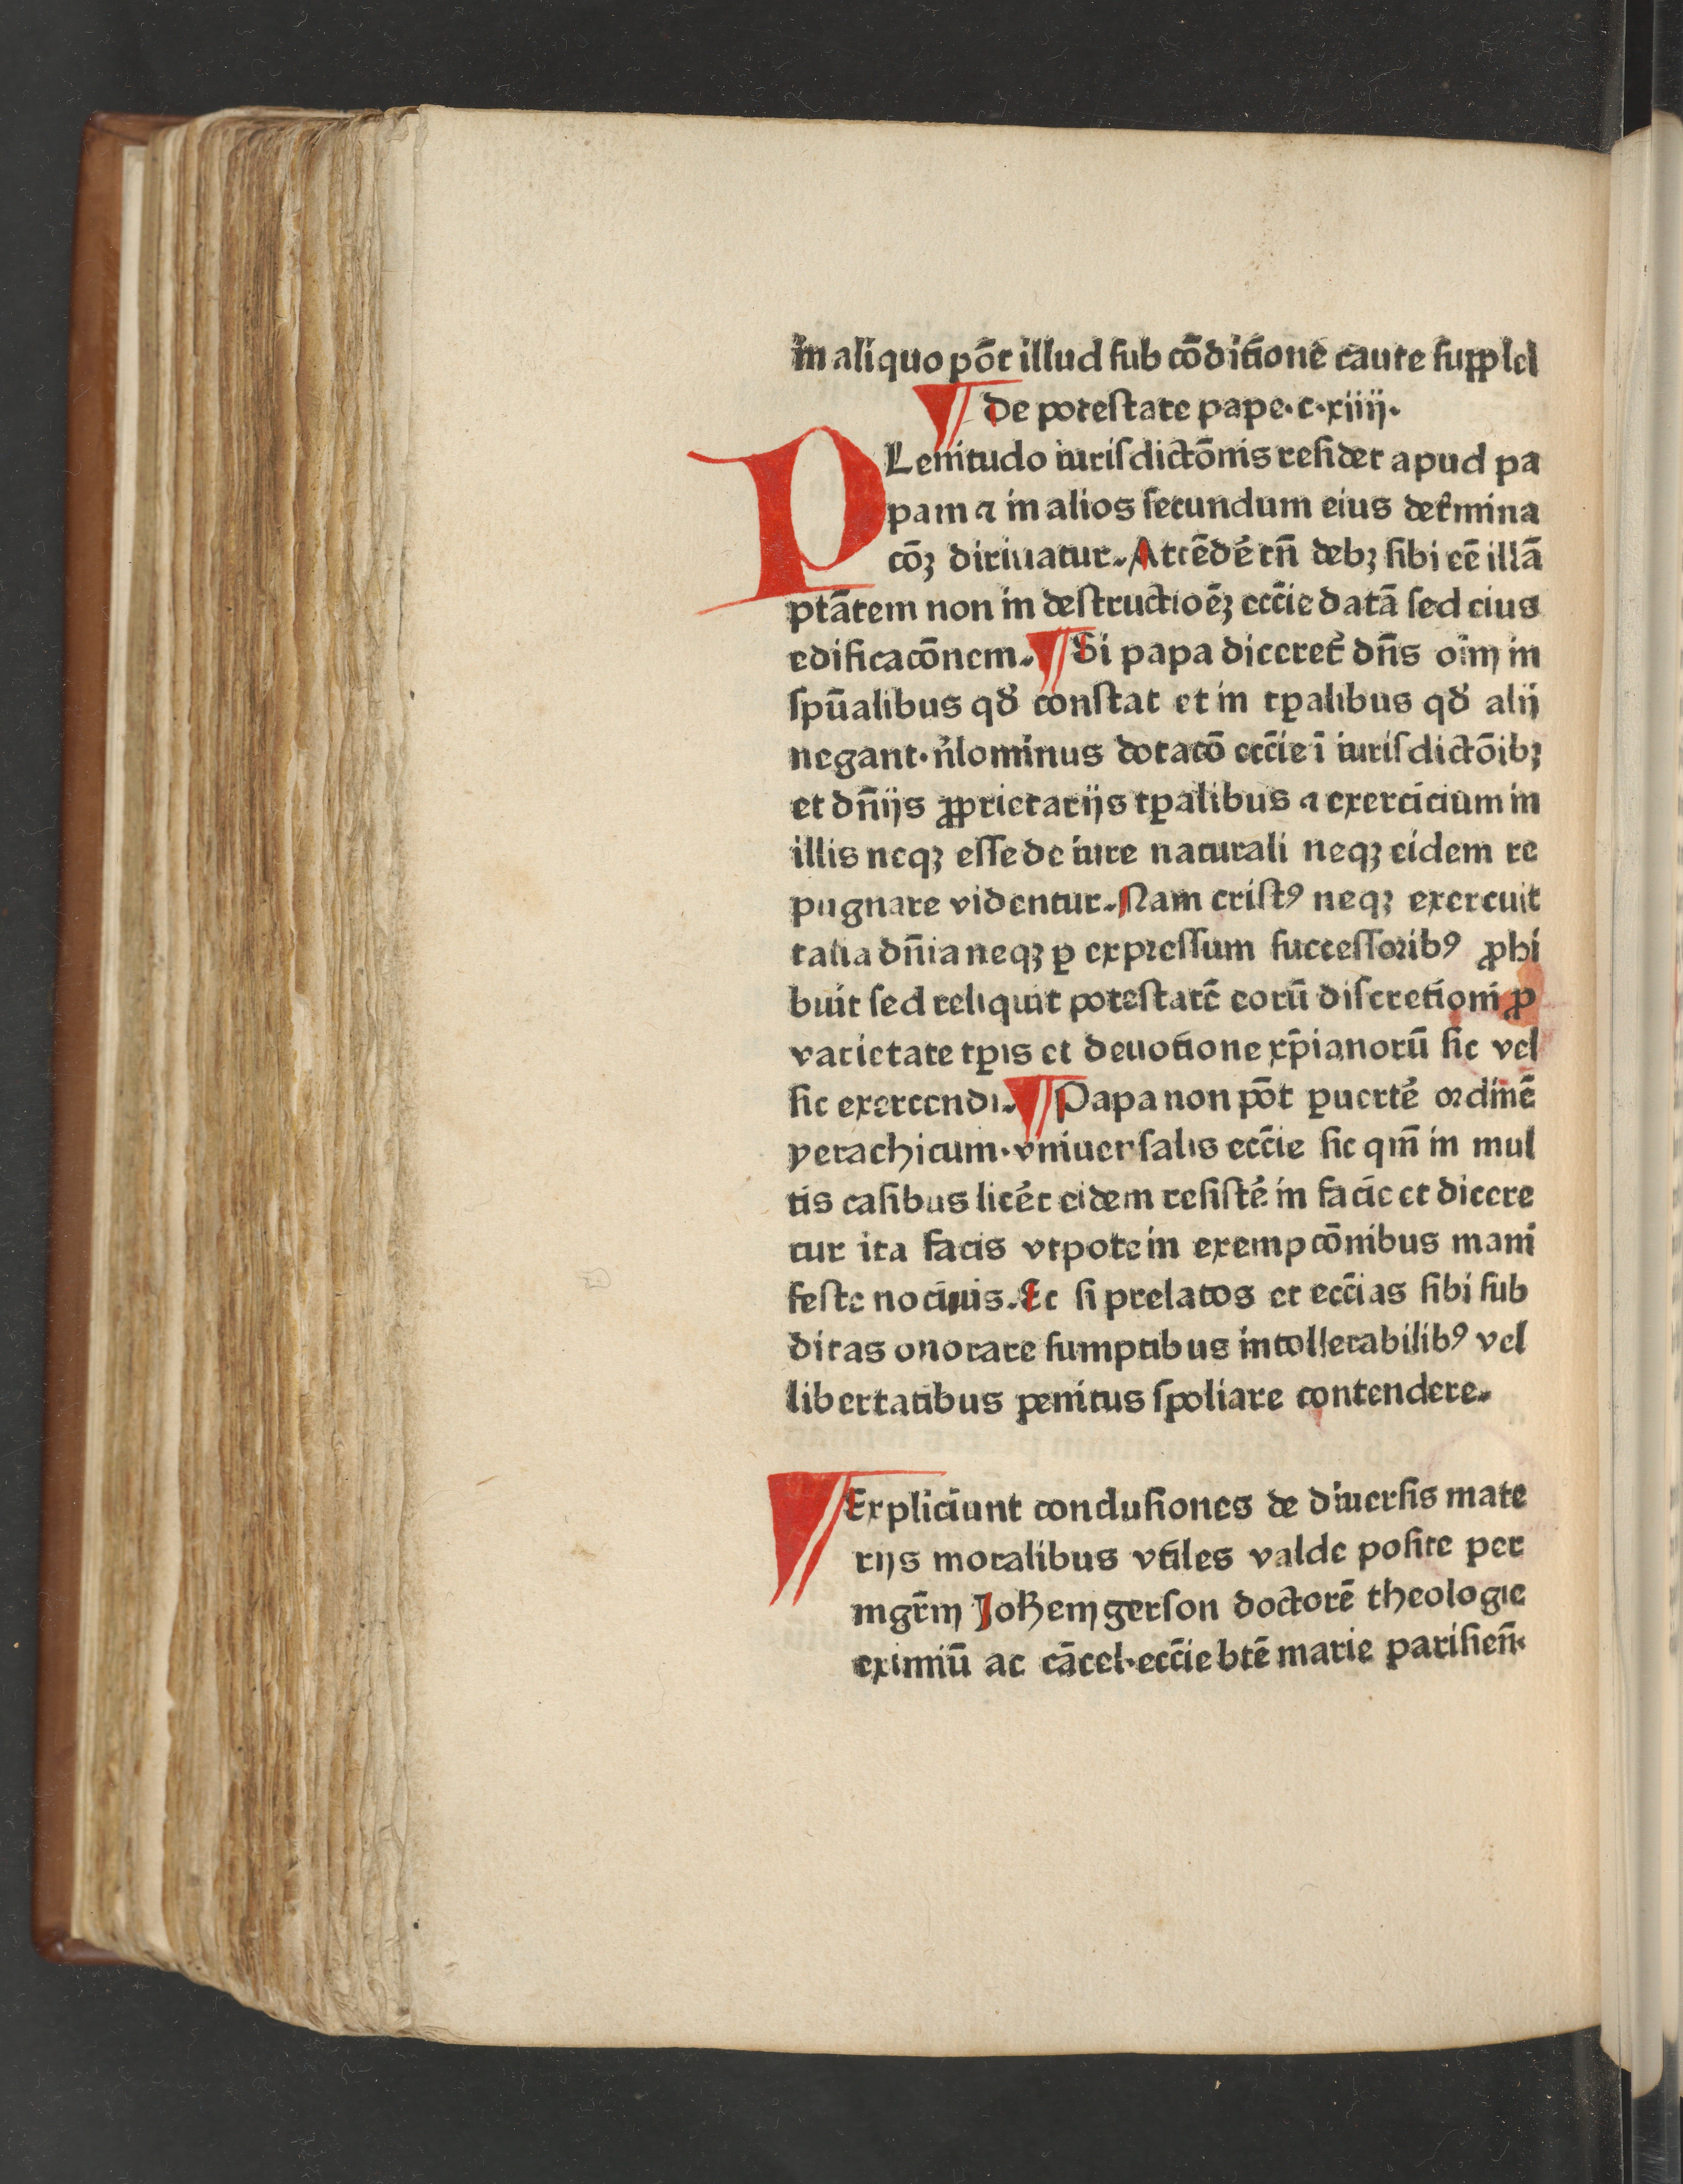 in aliquo põt illud ſub cõditione caute ſupplel
¶ De poteſtate pape·c·xiiij·
PLenitudo iuriſdictõnis reſidet apud pa
pam ⁊ in alios ſecundum eius det̉mina
cõꝫ diriuatur. Attẽdẽ tñ debꝫ ſibi eẽ illã
ptãtem non in deſtructioẽꝫ ecc̃ie datã ſed eius
edificacõnem. ¶ Si papa diceret̉ dñs oĩm in
ſpũalibus qđ conſtat et in tꝑalibus qđ alij
negant·nͥlominus dotacõ ecc̃ie ĩ iuriſdictõibꝫ
et dñijs ꝓprietarijs tꝑalibus ⁊ exercicium in
illis neqꝫ eſſe de iure naturali neqꝫ eidem re
pugnare videntur. Nam criſtꝰ neqꝫ exercuit
talia dñia neqꝫ ꝑ expreſſum ſucceſſoribꝰ ꝓhi
buit ſed reliquit poteſtatẽ eorũ diſcretioni ꝓ
varietate tꝑis et deuotione xp̃ianorũ ſic vel
ſic exercendi. ¶ Papa non põt ꝑuertẽ ordinẽ
yerachicum·vniuerſalis ecc̃ie ſic qm̃ in mul
tis caſibus licẽt eidem reſiſtẽ in facie et dicere
cur ita facis vtpote in exempcõnibus mani
feſte nociuis. Et ſi prelatos et ecc̃ias ſibi ſub
ditas onorare ſumptibus intollerabilibꝰ vel
libertatibus penitus ſpoliare contendere.
¶ Expliciunt concluſiones de diuerſis mate
rijs moralibus vtiles valde poſite per
mgr̃m Joħem gerſon doctorẽ theologie
eximiũ ac cãcel·ecc̃ie btẽ marie pariſieñ·